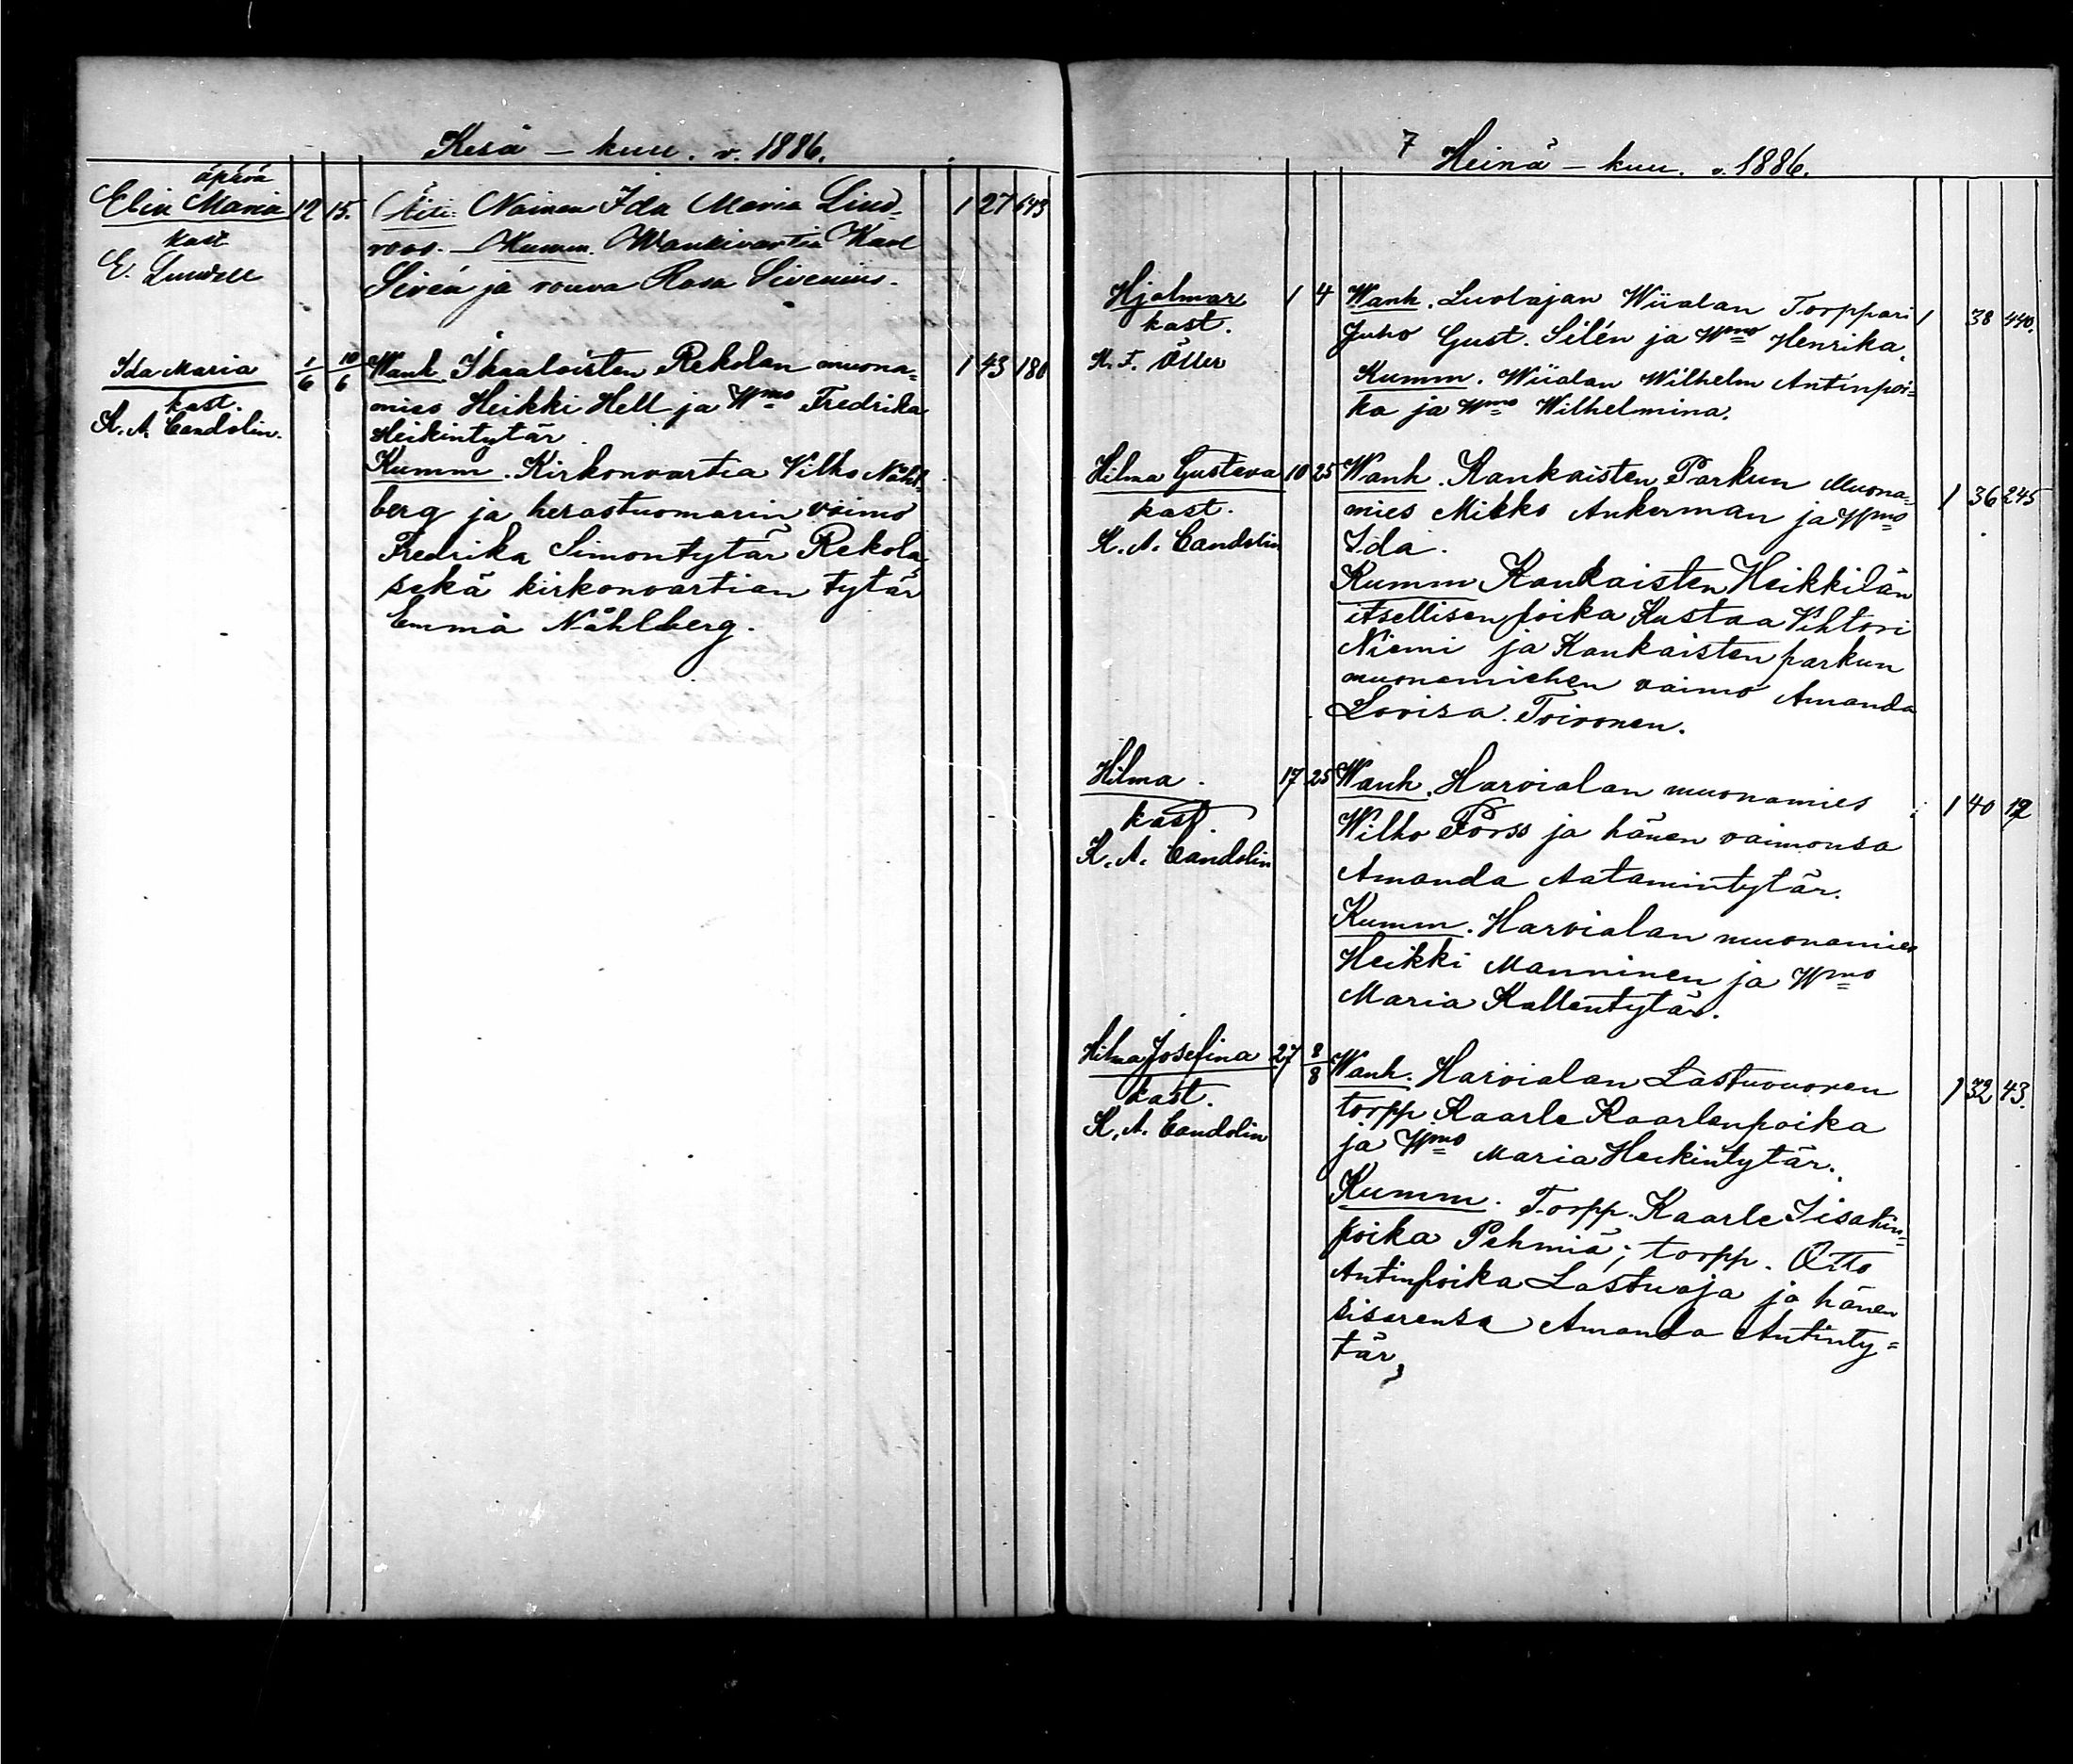 Kesä - kuu. v. 1886.
äpärä
Elin Maria 12 15. Äiti: Nainen Ida Maria Lind- 1 27 643
kast roos. - Kumm. Wankivartia Karl
E. Lindell Sirén ja rouva Rosa Sirenius.
Ida Maria 1/6 10/6 Wanh. Ikaaloisten Rekolan muona- 1 43 180
kast. mies Heikki Hell ja Wmo Fredrika
K. A. Candolin. Heikintytär.
Kumm. Kirkonvartia Vilho Nåhl-
berg ja herastuomarin vaimo
Fredrika Simontytär Rekola,
sekä kirkonvartian tytär
Emma Nåhlberg.
7 Heinä - kuu. v. 1886.
Hjalmar 1 4 Wanh. Luolajan Wiialan Torppari 1 38 440.
kast. Juho Gust. Silén ja Wmo Henrika.
K. F. Öller Kumm. Wiialan Wilhelm Antinpoi-
ka ja Wmo Wilhelmina.
Hilma Gustava 10 25 Wanh. Kankaisten Parkun Muona- 1 36 245
kast. mies Mikko Ankerman ja Wmo
K. A. Candolin Ida.
Kumm Kankaisten Heikkilän
itsellisen poika Kustaa Vihtori
Niemi ja Kankaisten parkun
muonamiehen vaimo Amanda
Lovisa Toivonen.
Hilma. 17 25 Wanh. Harvialan muonamies 1 40 12
kast. Wilho Forss ja hänen vaimonsa
K. A. Candolin Amanda Aatamintytär.
Kumm. Harvialan muonamies
Heikki Manninen ja Wmo
Maria Kallentytär.
Hilma Josefina 27 8/8 Wanh. Harvialan Lastuvuoren 1 32 43.
kast. torpp. Kaarle Kaarlenpoika
K. A. Candolin ja Wmo Maria Heikintytär.
Kumm. Torpp. Kaarle Iisakin-
poika Pehmiä; torpp. Otto
Antinpoika Lastuoja ja hänen
sisarensa Amanda Antinty-
tär,